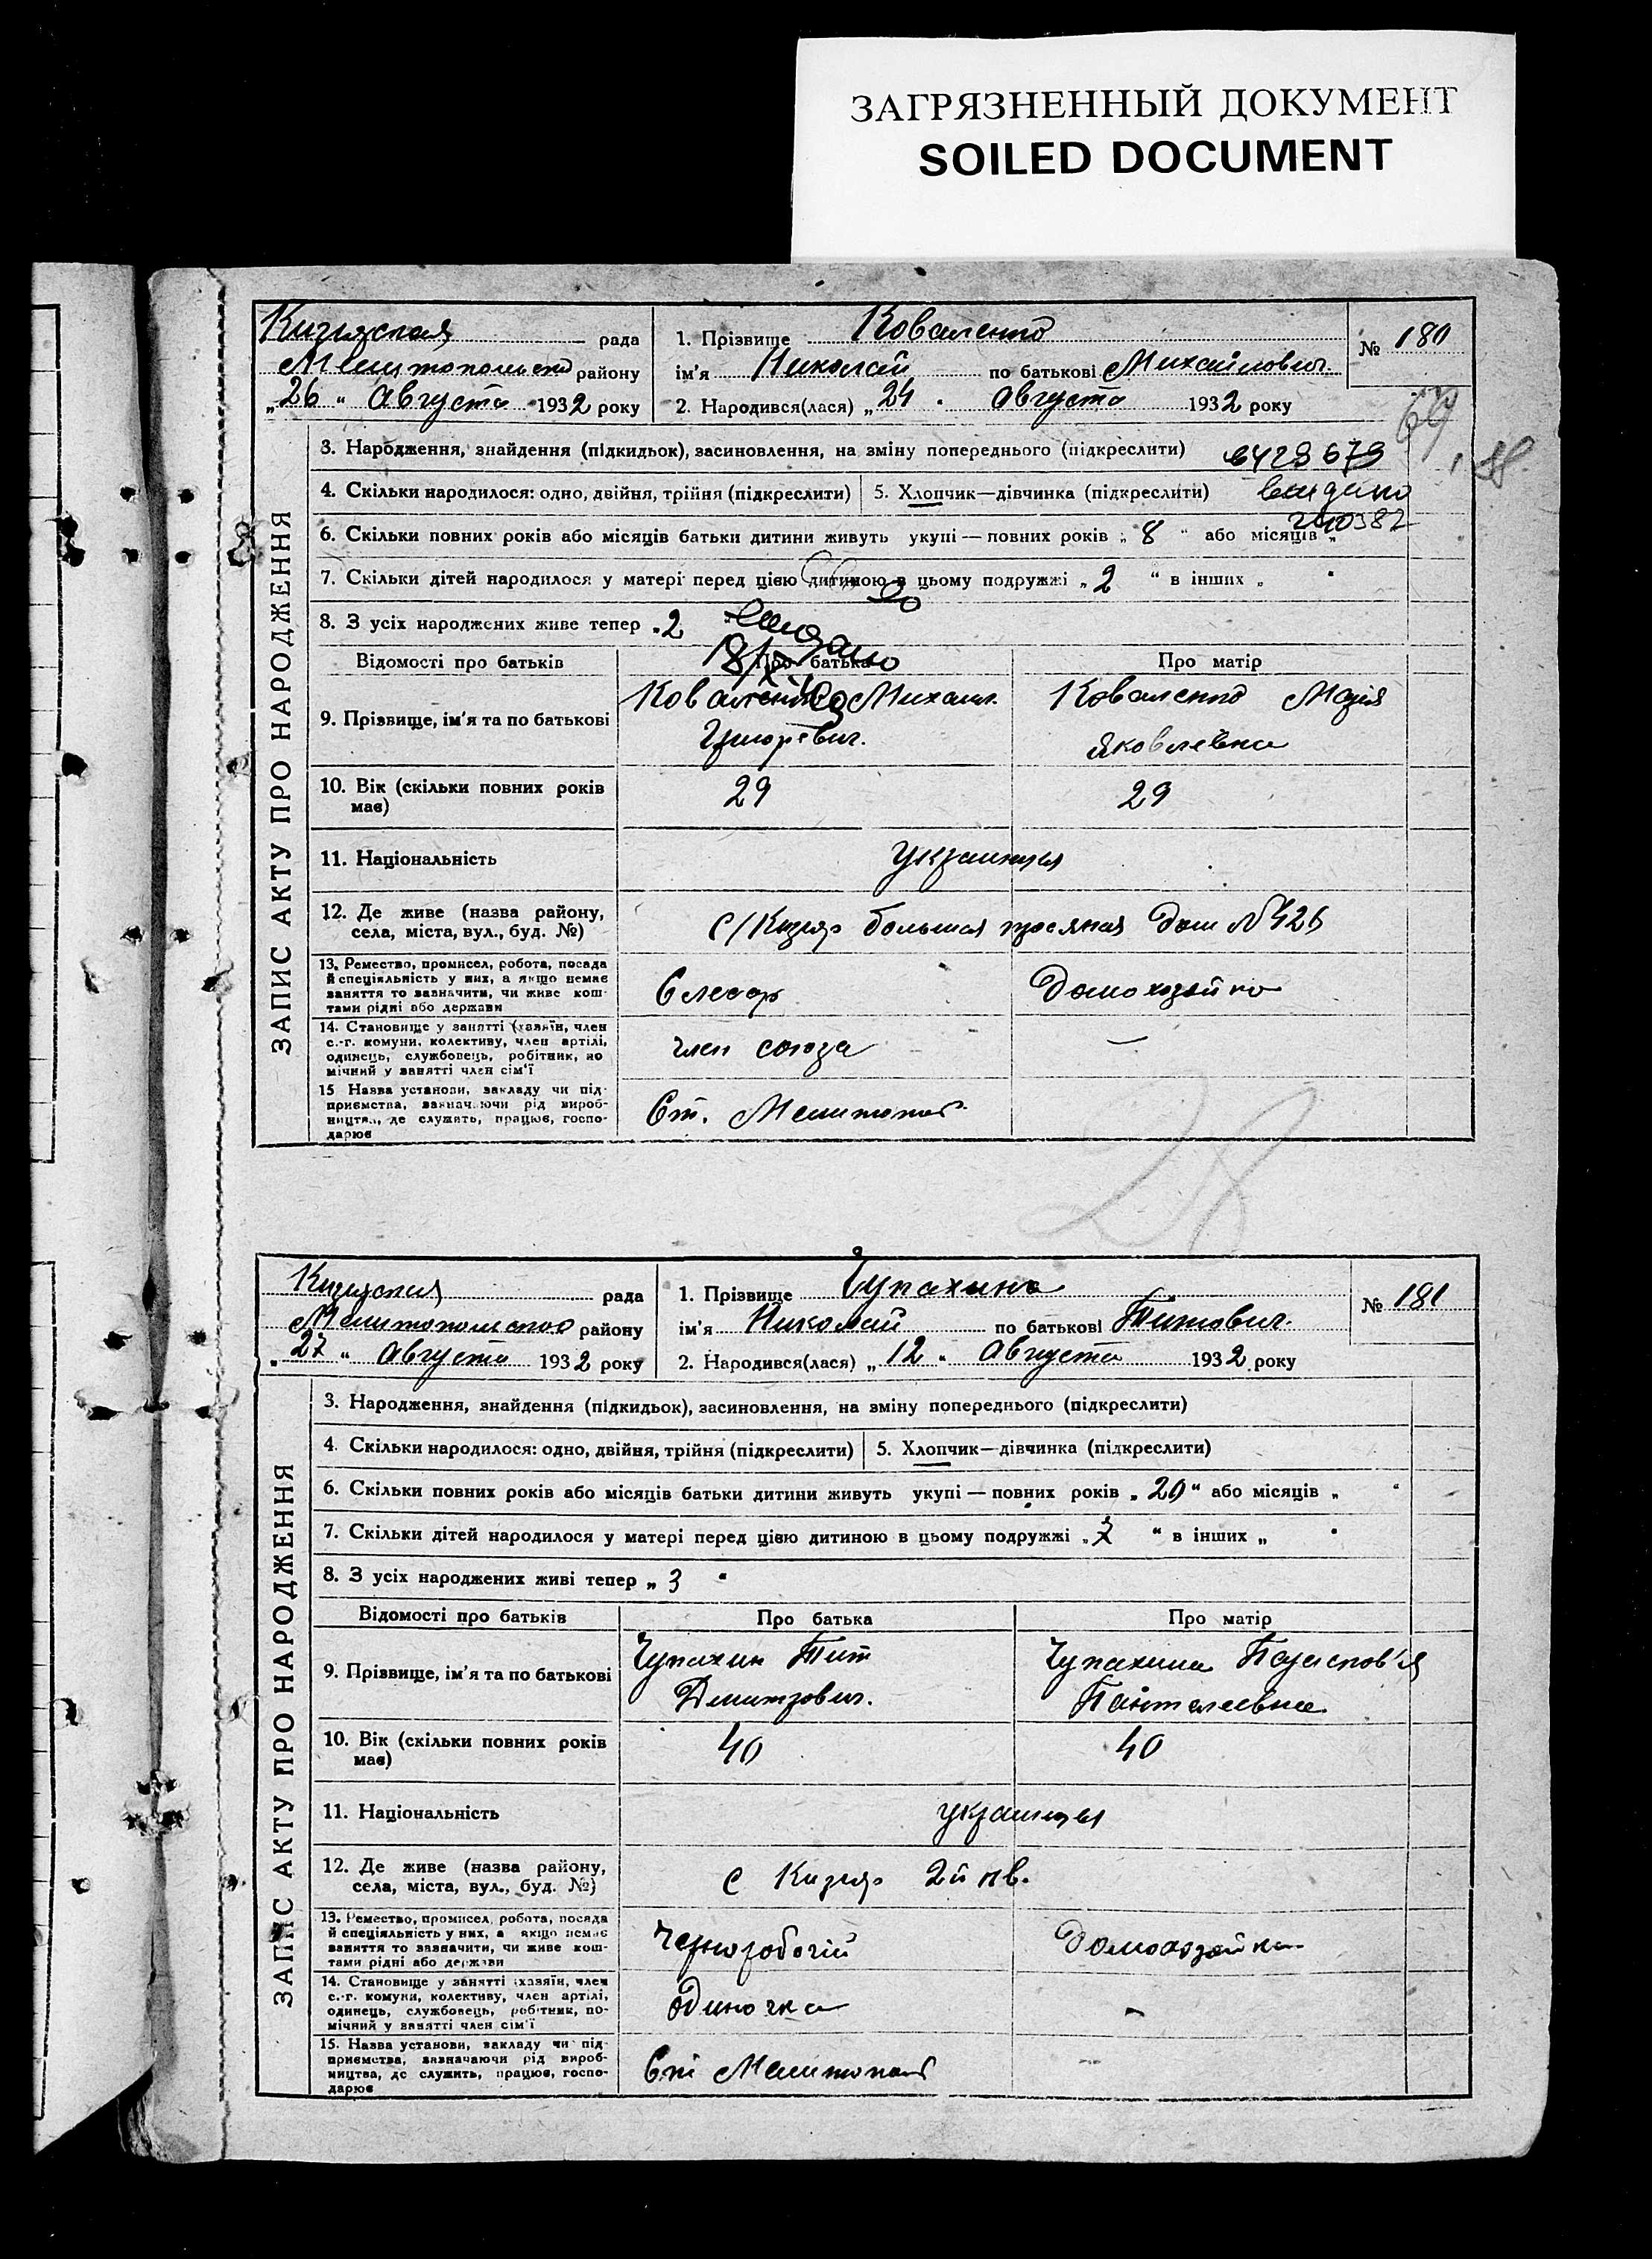 ЗАГРЯЗНЕННЫЙ ДОКУМЕНТ
SOILED DOCUMENT
Кизиярская рада
Мелитопольско району
„26“ Августа 1932 року
1. Прізвище Коваленко
ім'я Николай по батькові Михайлович
2. Народився(лася) „24“ Августа 1932 року
№ 180
69
3. Народження, знайдення (підкидьок), засиновлення, на зміну попереднього (підкреслити)
4. Скільки народилося: одно, двійня, трійня (підкреслити)
5. Хлопчик—дівчинка (підкреслити) видано
6. Скільки повних років або місяців батьки дитини живуть укупі — повних років „8“ або місяців „
240382
7. Скільки дітей народилося у матері перед цією дитиною в цьому подружжі „2“ в інших „ “
8. З усіх народжених живе тепер „2
Відомості про батьків
Про батька
Про матір
9. Прізвище, ім'я та по батькові
Коваленко Михаил
Григорьевич.
Коваленко Мария
Яковлевна
10. Вік (скільки повних років має)
29
29
11. Національність
украинцы
12. Де живе (назва району, села, міста, вул., буд. №)
с/Кизияр большая дом № 426
13. Ремество, промисел, робота, посада й спеціяльність у них, а якщо немає заняття то зазначити, чи живе коштами рідні або держави
Слесарь
Домохозяйка
14. Становище у занятті (хазяїн, член с.-г. комуни, колективу, член артілі, одинець, службовець, робітник, помічний у занятті член сім'ї
член союза
—
15 Назва установи, закладу чи підприємства, зазначаючи рід виробництва, де служить, працює, господарює
Ст. Мелитополь
ЗАПИС АКТУ ПРО НАРОДЖЕННЯ
28
Кизиярская рада
Мелитопольско району
„27“ Августа 1932 року
1. Прізвище Чупахин
ім'я Николай по батькові Титович.
2. Народився(лася) „12“ Августа 1932 року
№ 181
3. Народження, знайдення (підкидьок), засиновлення, на зміну попереднього (підкреслити)
4. Скільки народилося: одно, двійня, трійня (підкреслити)
5. Хлопчик—дівчинка (підкреслити)
6. Скільки повних років або місяців батьки дитини живуть укупі — повних років „20“ або місяців „ “
7. Скільки дітей народилося у матері перед цією дитиною в цьому подружжі „ “ в інших „ “
8. З усіх народжених живі тепер „3 “
Відомості про батьків
Про батька
Про матір
9. Прізвище, ім'я та по батькові
Чупахин Тит
Дмитрович.
Чупахина Парасков'я
Пантелеевна
10. Вік (скільки повних років має)
40
40
11. Національність
украинцы
12. Де живе (назва району, села, міста, вул., буд. №)
с Кизияр 2й кв.
13. Ремество, промисел, робота, посада й спеціяльність у них, а якщо немає заняття то зазначити, чи живе коштами рідні або держави
Чернорабочій
Домохозяйка
14. Становище у занятті (хазяїн, член с.-г. комуни, колективу, член артілі, одинець, службовець, робітник, помічний у занятті член сім'ї
одиночка
—
15. Назва установи, закладу чи підприємства, зазначаючи рід виробництва, де служить, працює, господарює
Ст Мелитополь
ЗАПИС АКТУ ПРО НАРОДЖЕННЯ